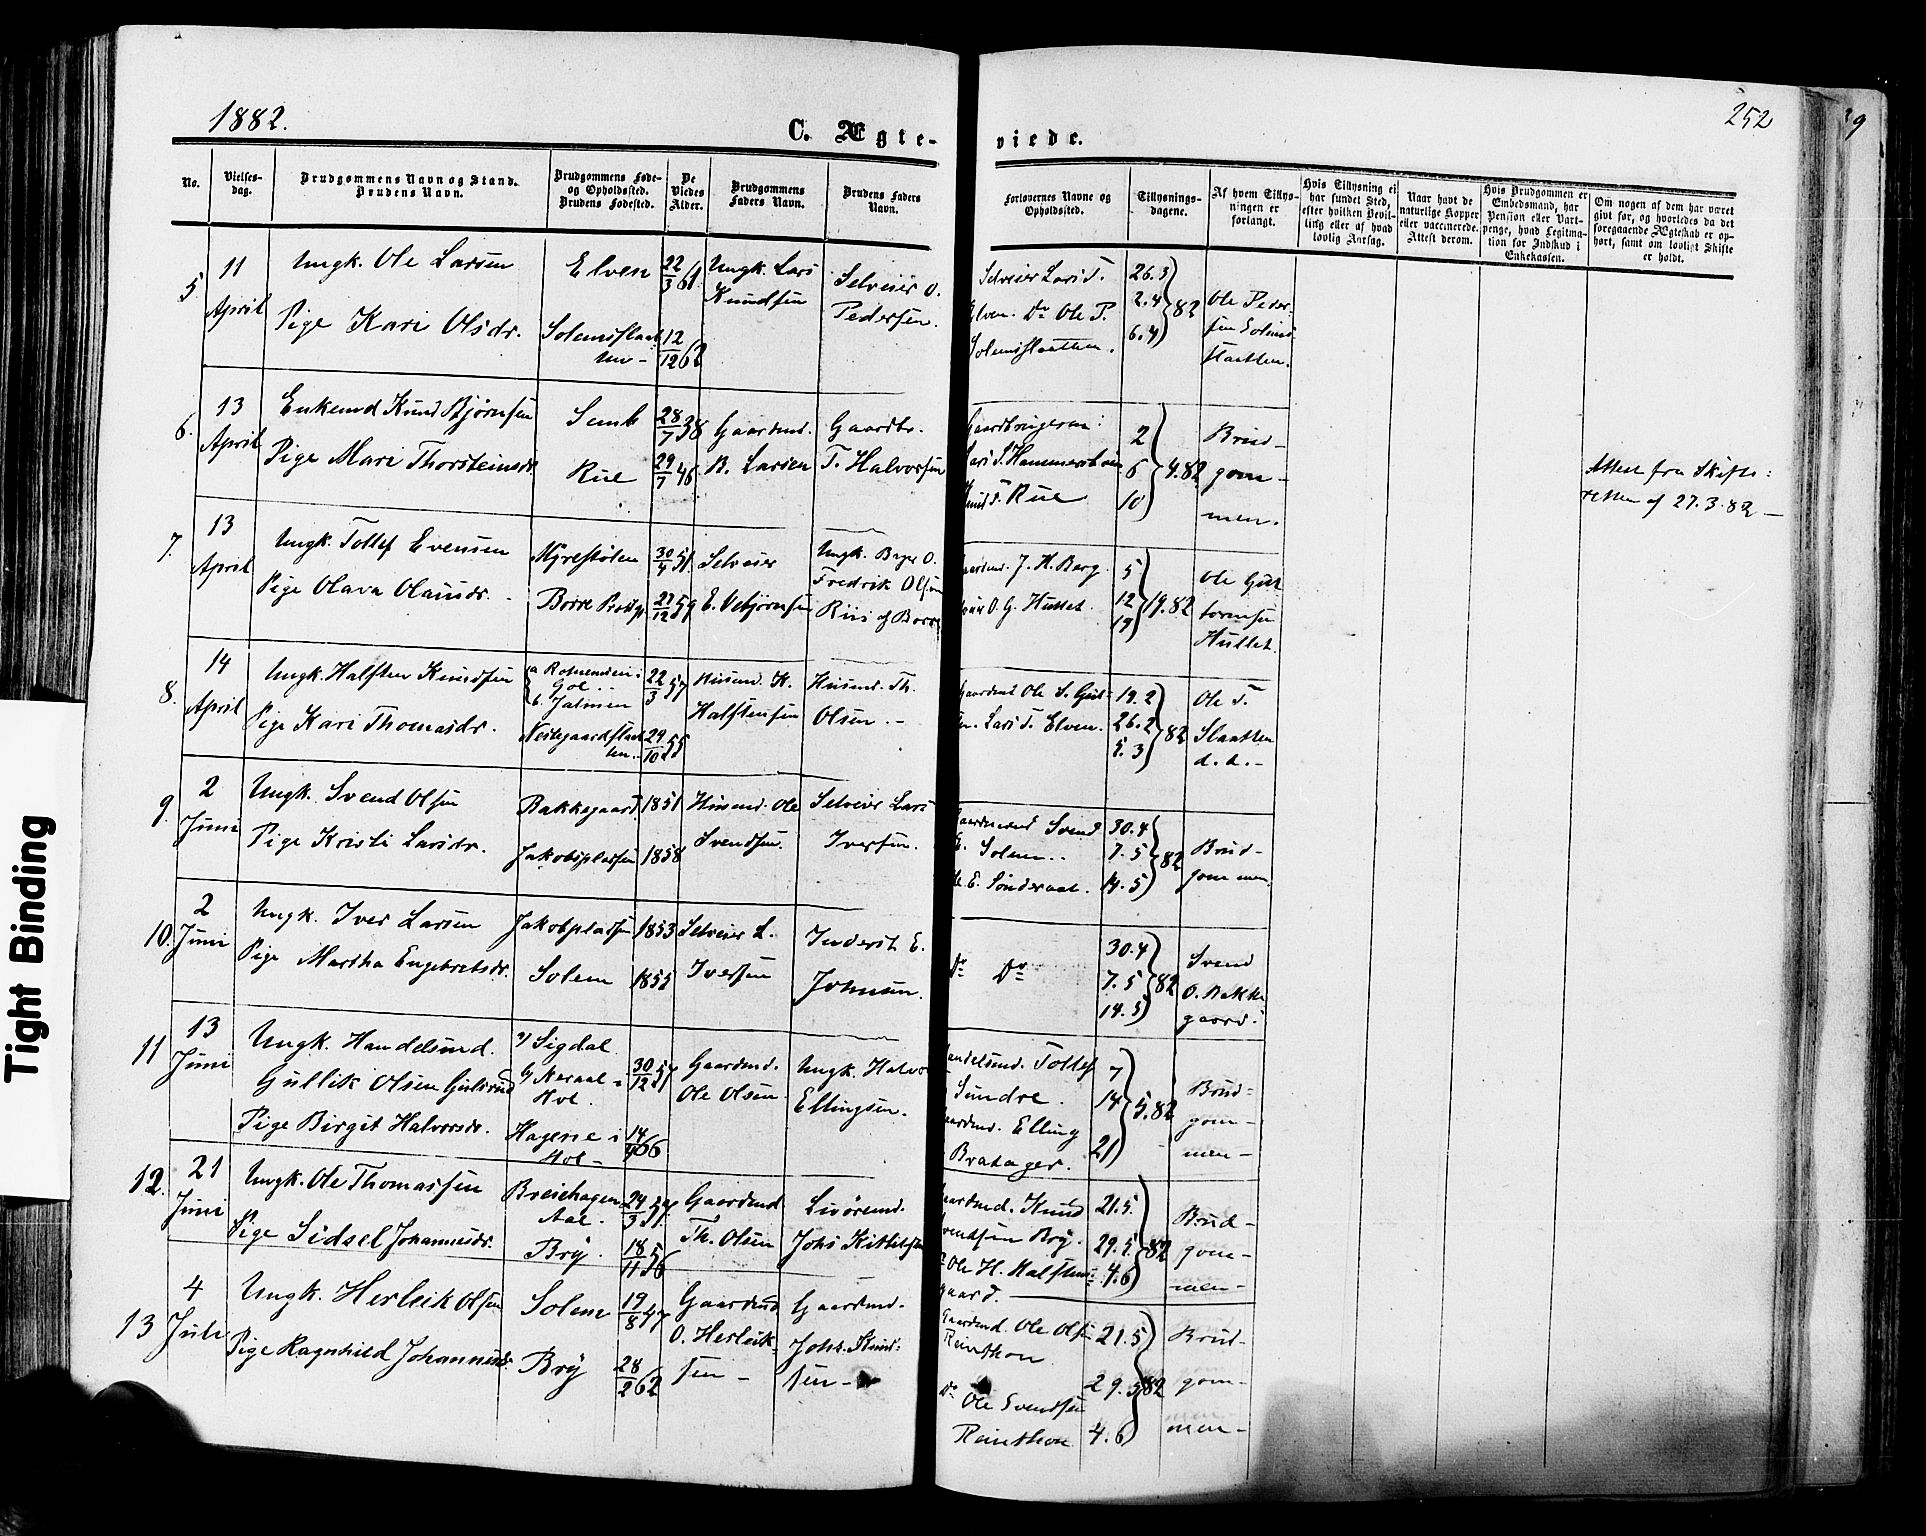 1882.
252
C. Ægte-
viede.
No.
Vielses-
dag.
Brudgommens Navn og Stand.
Brudens Navn.
Brudgommens Føde-
og Opholdssted.
Brudens Fødested.
De
Viedes
Alder.
Brudgommens
Faders Navn.
Brudens Faders
Navn.
Forlovernes Navne og
Opholdssted.
Tillysnings-
dagene.
Af hvem Tillys-
ningen er
forlangt.
Hvis Tillysning ei
har fundet Sted,
efter hvilken Bevil-
ling eller af hvad
lovlig Aarsag.
Naar havt de
naturlige Kopper
eller vaccinerede.
Attest derom.
Hvis Brudgommen er
Embedsmand, har
Pension eller Vart-
penge, hvad Legitima-
tion for Indskud i
Enkekassen.
Om nogen af dem har været
gift før, og hvorledes da det
foregaaende Ægteskab er op-
hørt, samt om lovligt Skifte
er holdt.
5
11
April
Ungk. Ole Larsen
Pige Kari Olsdr.
Elven
Solemsslaat
ten -
22/3 61
12/12 62
Ungk. Lars
Knudsen
Selveier O.
Pedersen.
Selveier Lars T.
Elven. Do Ole P.
Solemsslaatten.
26.3
2.4
6.4
82
Ole Peder-
sen Solems
slaatten.
6.
13
April
Enkemd Knud Bjørnsen
Pige Mari Thorsteinsdr
Semb
Rue
28/7 38
29/7 46
Gaardmd.
B. Larsen
Gaardbr.
T. Halvorsen
Gaardbrugerne:
Lars T. Hammersbøen
Knud T. Rue
2
6
10
4.82
Brud-
gom-
men.
Attest fra Skifte-
retten af 27.3.82 -
7.
13
April
Ungk. Tollef Evensen
Pige Olava Olausdr. -
Myrestølen
Borre Præstgj
30/4 51
27/12 59
Selveier
E. Vebjørnsen
Ungk. Bager O.
Fredrik Olsen
Riis af Borre
J. H. Berg.
O. G. Hullet.
5
12
19
19.82
Ole Gut
tormsen
Hullet.
8.
14
April
Ungk. Halsten Knudsen
Pige Kari Thomasdr.
a Rotneim i
Gol
b. Jutmien
Nestegaardslaat
ten.
22/3 57
29/10 55
Husmd. K.
Halstensen
Husmd. Th.
Olsen. -
Gaardmd Ole S. Gul-
Lars T. Elven.
19.2
26.2
5.3
82
Ole T.
Slaatten
d. d. -
9.
2
Juni
Ungk. Svend Olsen
Pige Kristi Larsdr.
Bakkegaard
Jakobsplassen
1851
1858
Husmd. Ole
Svendsen.
Selveier Lars
Iversen.
Gaardmand Svend
E. Solem..
E. Sønderaal.
30.4
7.5
14.5
82
Brud-
gommen.
10.
2
Juni
Ungk. Iver Larsen
Pige Martha Engebretsdr.
Jakobplassen
Solem
1853
1855
Selveier L.
Iversen
Inderst E.
Johnsen.
Do Do
30.4
7.5
14.5
82
Svend
O. Bakke
gaard.
11
13
Juni
Ungk. Handelsmd.
Gullik Olsen Gulsrud
Pige Birgit Halvorsdr.
a/ Sigdal
b/ Neraal i
Hol.
Hagene i
Hol -
30/12 57
66
Gaardmd.
Ole Olsen
Ungk. Halvor
Ellingsen.
Handelsmd. Tollef
Sundre.
Gaardmd. Elling
Brataager.
7
14
21
5.82
Brud-
gom-
men -
12.
21
Juni
Ungk. Ole Thomassen
Pige Sidsel Johannesdr.
Breiehagen
Aal.
Bry.
24/3 57
18/11 56
Gaardmd
Th. Olsen
Livøremd.
Johs Kittilsen
Gaardmd. Knud
Svendsen Bry.
Do Ole H. Halsten-
gaard.
21.5
29.5
4.6
82
Brud-
gom-
men -
13
4
Juli
Ungk. Herleik Olsen
Pige Ragnhild Johannesdr.
Solem
Bry
19/8 47
28/2 62
Gaardmd
O. Herleik-
sen -
Gaardmd.
Johs. Knud-
sen -
Gaardmd. Ole Olsen
Reinthon
Do Ole Svendsen
Reinthon
21.5
29.5
4.6
82
Brud-
gom-
men -
Tight Binding